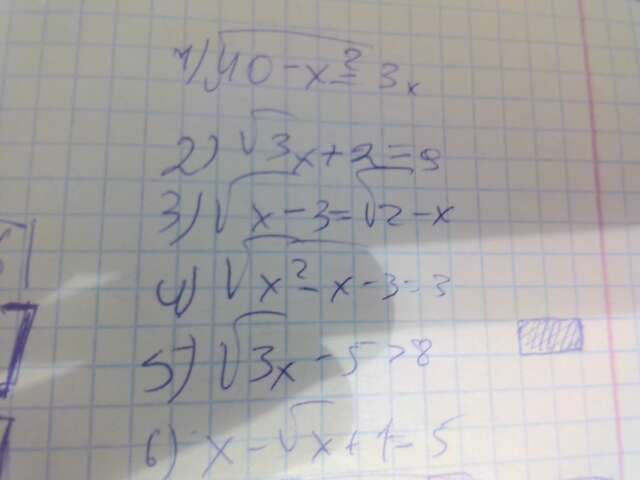 1) √40 - x² = 3x
2) √3x + 2 = 9
3) √x - 3 = √2 - x
4) √x² - x - 3 = 3
5) √3x - 5 > 8
6) x - √x + 1 = 5